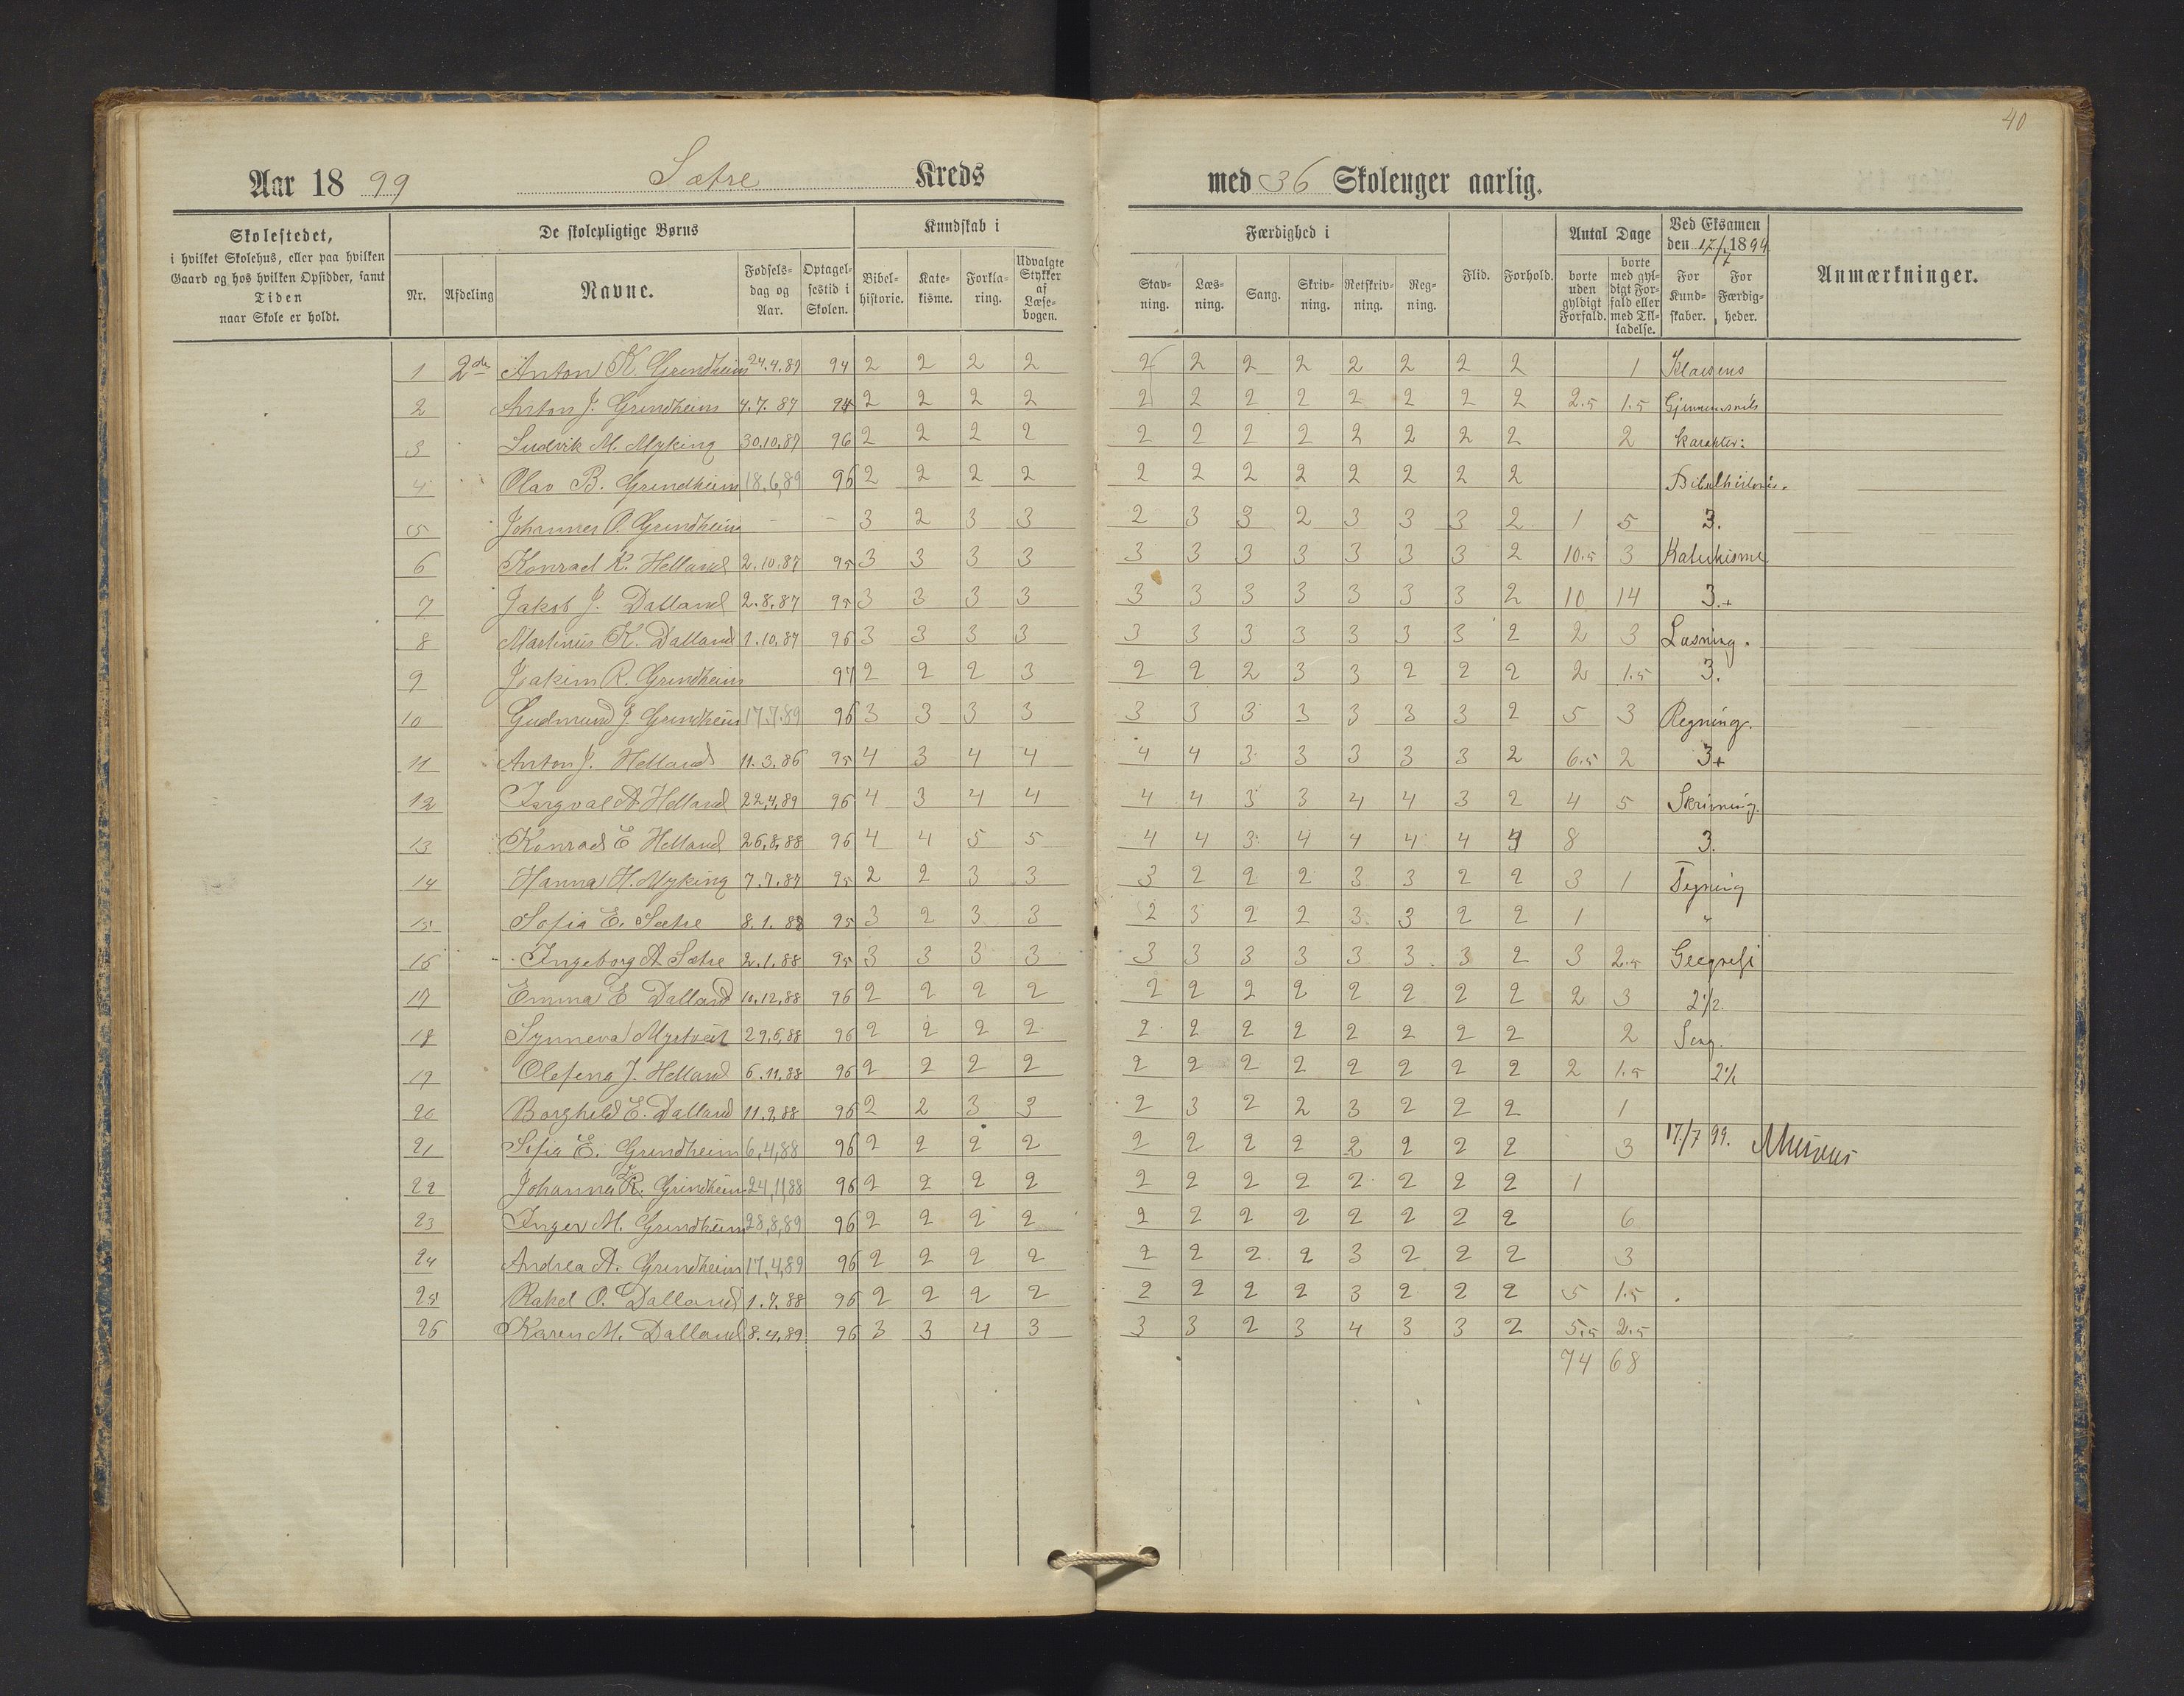 40
Aar 1899 Sætre Kreds med 36 Skoleuger aarlig.
Skolestedet, i hvilket Skolehus, eller paa hvilken Gaard og hos hvilken Opsidder, samt Tiden naar Skole er holdt.
De skolepligtige Børns
Nr. Afdeling Navne. Fødselsdag og Aar. Optagelsestid i Skolen.
Kundskab i
Bibelhistorie. Katekisme. Forklaring. Udvalgte Stykker af Læsebogen.
Færdighed i
Stavning. Læsning. Sang. Skrivning. Retskrivning. Regning.
Flid. Forhold.
Antal Dage
borte uden gyldigt Forfald. borte med gyldigt Forfald eller med Tilladelse.
Ved Eksamen den 17/7 1899
For Kundskaber. For Færdigheder.
Anmærkninger.
1 2den Anton K. Grendheim 24.4.87 94 2 2 2 2 2 2 2 2 2 2 2 2 1 Klassens
2 Anton J. Grendheim 7.7.87 94 2 2 2 2 2 2 2 2 2 2 2 2 2.5 1.5 Gjennemsnits
3 Ludvik M. Myking 30.10.87 96 2 2 2 2 2 2 2 2 2 2 2 2 2 karakter:
4 Olav B. Grendheim 18.6.89 96 2 2 2 2 2 2 2 2 2 2 2 2 Bibelhistorie.
5 Johannes O. Grendheim - - 3 2 3 3 2 3 3 2 3 3 3 2 1 5 3.
6 Konrad K. Helland 2.10.87 95 3 3 3 3 3 3 3 3 3 3 3 2 10.5 3 Katekisme
7 Jakob J. Dalland 2.8.87 95 3 3 3 3 3 3 3 3 3 3 3 2 10 14 3.+
8 Martinus K. Dalland 1.10.87 96 3 3 3 3 3 3 3 3 3 3 3 2 2 3 Læsning.
9 Joakim R. Grendheim 97 2 2 2 3 2 2 2 3 3 2 2 2 2 1.5 3.
10 Gudmund J. Grendheim 17.7.89 96 3 3 3 3 3 3 3 3 3 3 3 2 5 3 Regning.
11 Anton J. Helland 11.3.86 95 4 3 4 4 4 4 3 3 3 3 3 2 6.5 2 3+
12 Ingval A Helland 22.4.89 96 4 3 4 4 4 4 3 3 4 4 3 2 4 5 Skrivning.
13 Konrad E Helland 26.8.88 96 4 4 5 5 4 4 3 4 4 4 4 4 8 3.
14 Hanna H. Myking 7.7.87 95 2 2 3 3 3 2 2 2 3 3 2 2 3 1 Tegning
15 Sofia E. Sætre 8.1.88 95 3 2 3 3 2 3 2 2 3 3 2 2 1 "
16 Ingeborg A Sætre 2.1.88 95 3 3 3 3 3 3 3 3 3 3 3 2 3 2.5 Geografi
17 Emma E Dalland 10.12.88 96 2 2 2 2 2 2 2 2 2 2 2 2 2 3 2 1/2.
18 Synneva Mystveit 29.6.88 96 2 2 2 2 2 2 2 2 2 2 2 2 2 Sang.
19 Olefena J. Helland 6.11.88 96 2 2 2 2 2 2 2 2 2 2 2 2 2 1.5
20 Borghild E. Dalland 11.9.88 96 2 2 3 3 2 3 2 2 3 2 2 2 1
21 Sofia E. Grendheim 6,4,88 96 2 2 2 2 2 2 2 2 2 2 2 2 3 17/7 99.
22 Johanna K. Grindheim 24,11 88 96 2 2 2 2 2 2 2 2 2 2 2 2 1
23 Inger M. Grendheim 28,8,89 96 2 2 2 2 2 2 2 2 2 2 2 2 6
24 Andrea A. Grendheim 17,4,89 96 2 2 2 2 2 2 2 2 3 2 2 2 3
25 Rakel O. Dalland 1.7.88 96 2 2 2 2 2 2 2 2 3 2 2 2 5 1.5
26 Karen M. Dalland 8.4.89 96 3 3 4 3 3 3 2 3 4 3 3 2 5.5 2.5
74 68